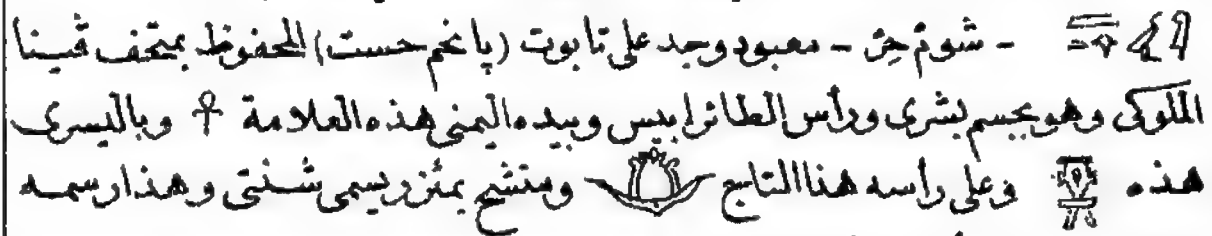 - شوم حن - معبود وجد على تابوت (پانخم حست) المحفوظ بمتحف ڤينا
الملوكى وهو بجسم بشرى ورأس الطائر ابيس وبيده اليمنى هذه العلامة ☥ وباليسرى
هذه وعلى راسه هذا التاج ومتشح بمئزر يسمى شنتى وهذا رسمه